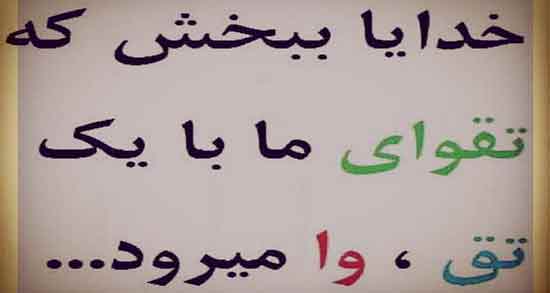 خدایا ببخش که
تقوای ما با یک
تق ، وا میرود...